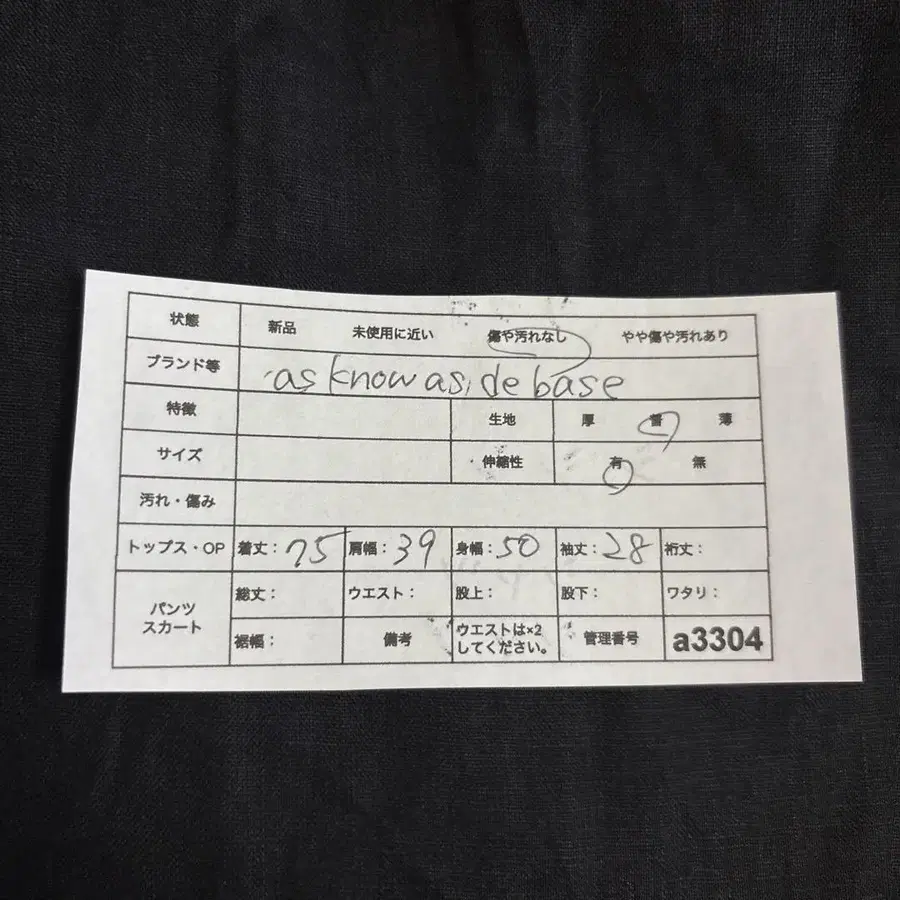 状態 新品 未使用に近い 傷や汚れなし やや傷や汚れあり
ブランド等 as know as de base
特徴 生地 厚 普 薄
サイズ 伸縮性 有 無
汚れ・傷み
トップス・OP 着丈: 75 肩幅: 39 身幅: 50 袖丈: 28 裄丈:
パンツ
スカート
総丈: ウエスト: 股上: 股下: ワタリ:
裾幅: 備考 ウエストは×2
してください。
管理番号 a3304